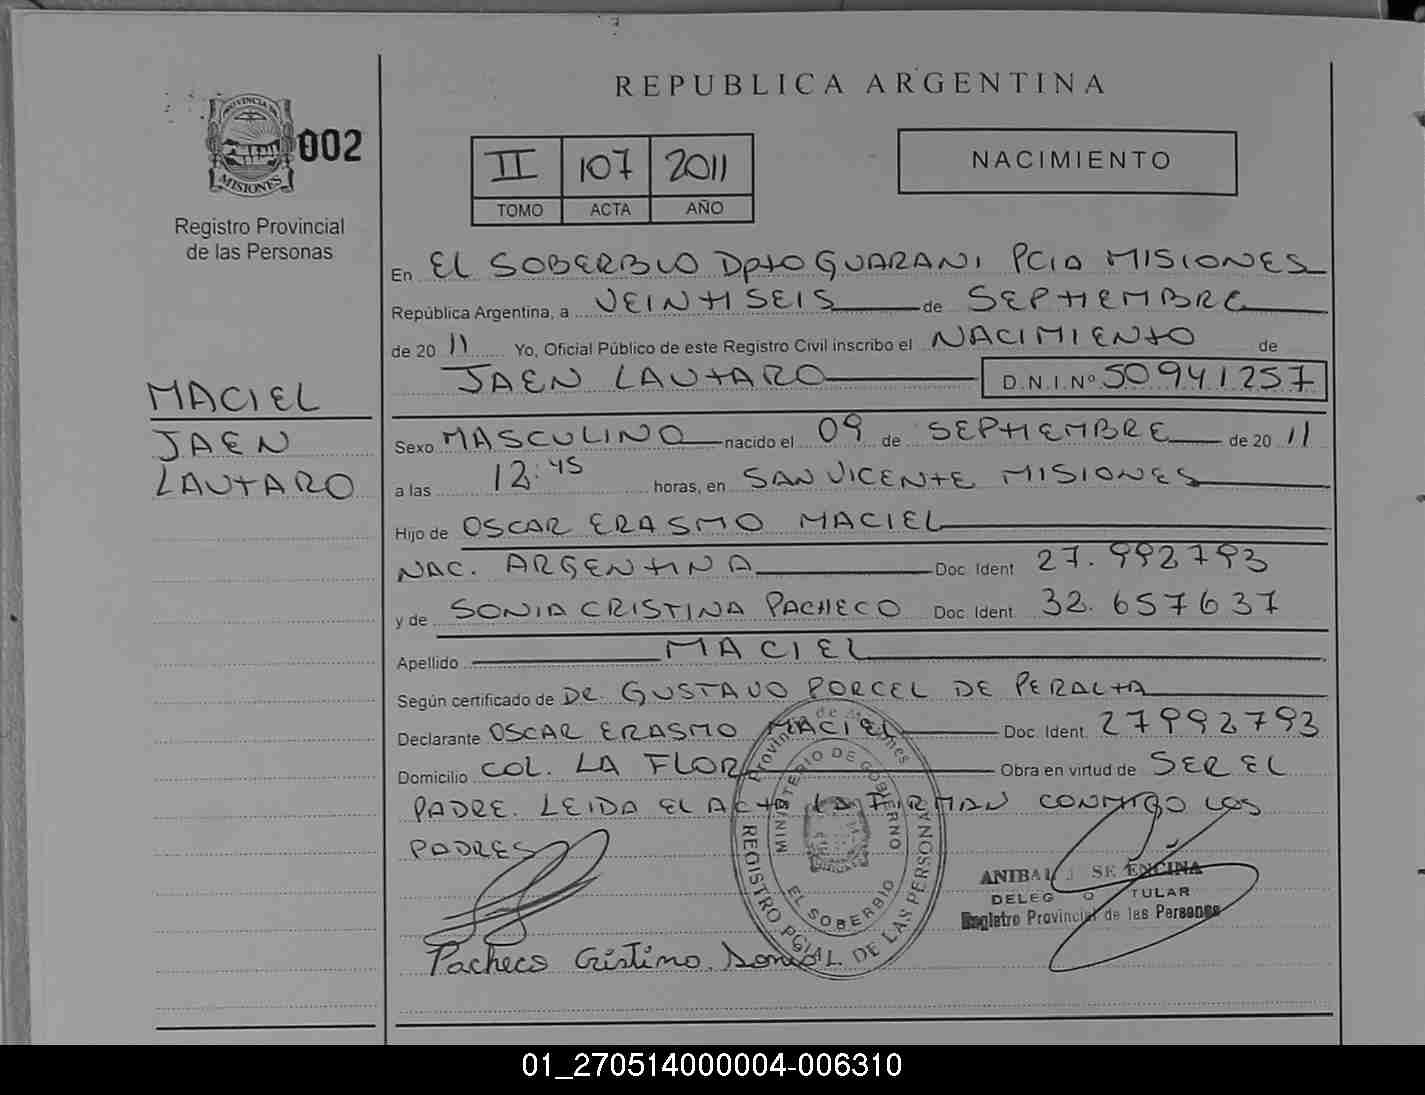 REPUBLICA ARGENTINA
PROVINCIA DE
MISIONES
002
Registro Provincial
de las Personas
II 107 2011
TOMO ACTA AÑO
NACIMIENTO
En EL SOBERBIO Dpto GUARANI PCIA MISIONES
República Argentina, a VEINTISEIS de SEPTIEMBRE
de 20 11 Yo, Oficial Público de este Registro Civil inscribo el NACIMIENTO de
JAEN LAUTARO D.N.I.Nº 50941257
MACIEL
JAEN
LAUTARO
Sexo MASCULINO nacido el 09 de SEPTIEMBRE de 20 11
a las 12:45 horas, en SAN VICENTE MISIONES
Hijo de OSCAR ERASMO MACIEL
NAC. ARGENTINA Doc. Ident. 27.992793
y de SONIA CRISTINA PACHECO Doc. Ident. 32.657637
Apellido MACIEL
Según certificado de DR. GUSTAVO PORCEL DE PERALTA
Declarante OSCAR ERASMO MACIEL Doc. Ident. 27992793
Domicilio COL. LA FLOR Obra en virtud de SER EL
PADRE. LEIDA EL ACTA LA FIRMAN CONMIGO LOS
PADRES
Provincia de Misiones
MINISTERIO DE GOBIERNO
EL SOBERBIO
REGISTRO PCIAL. DE LAS PERSONAS
ANIBAL J SE ENCINA
DELEG O TULAR
Registro Provincial de las Personas
Pacheco Cristina Sonia
01_270514000004-006310